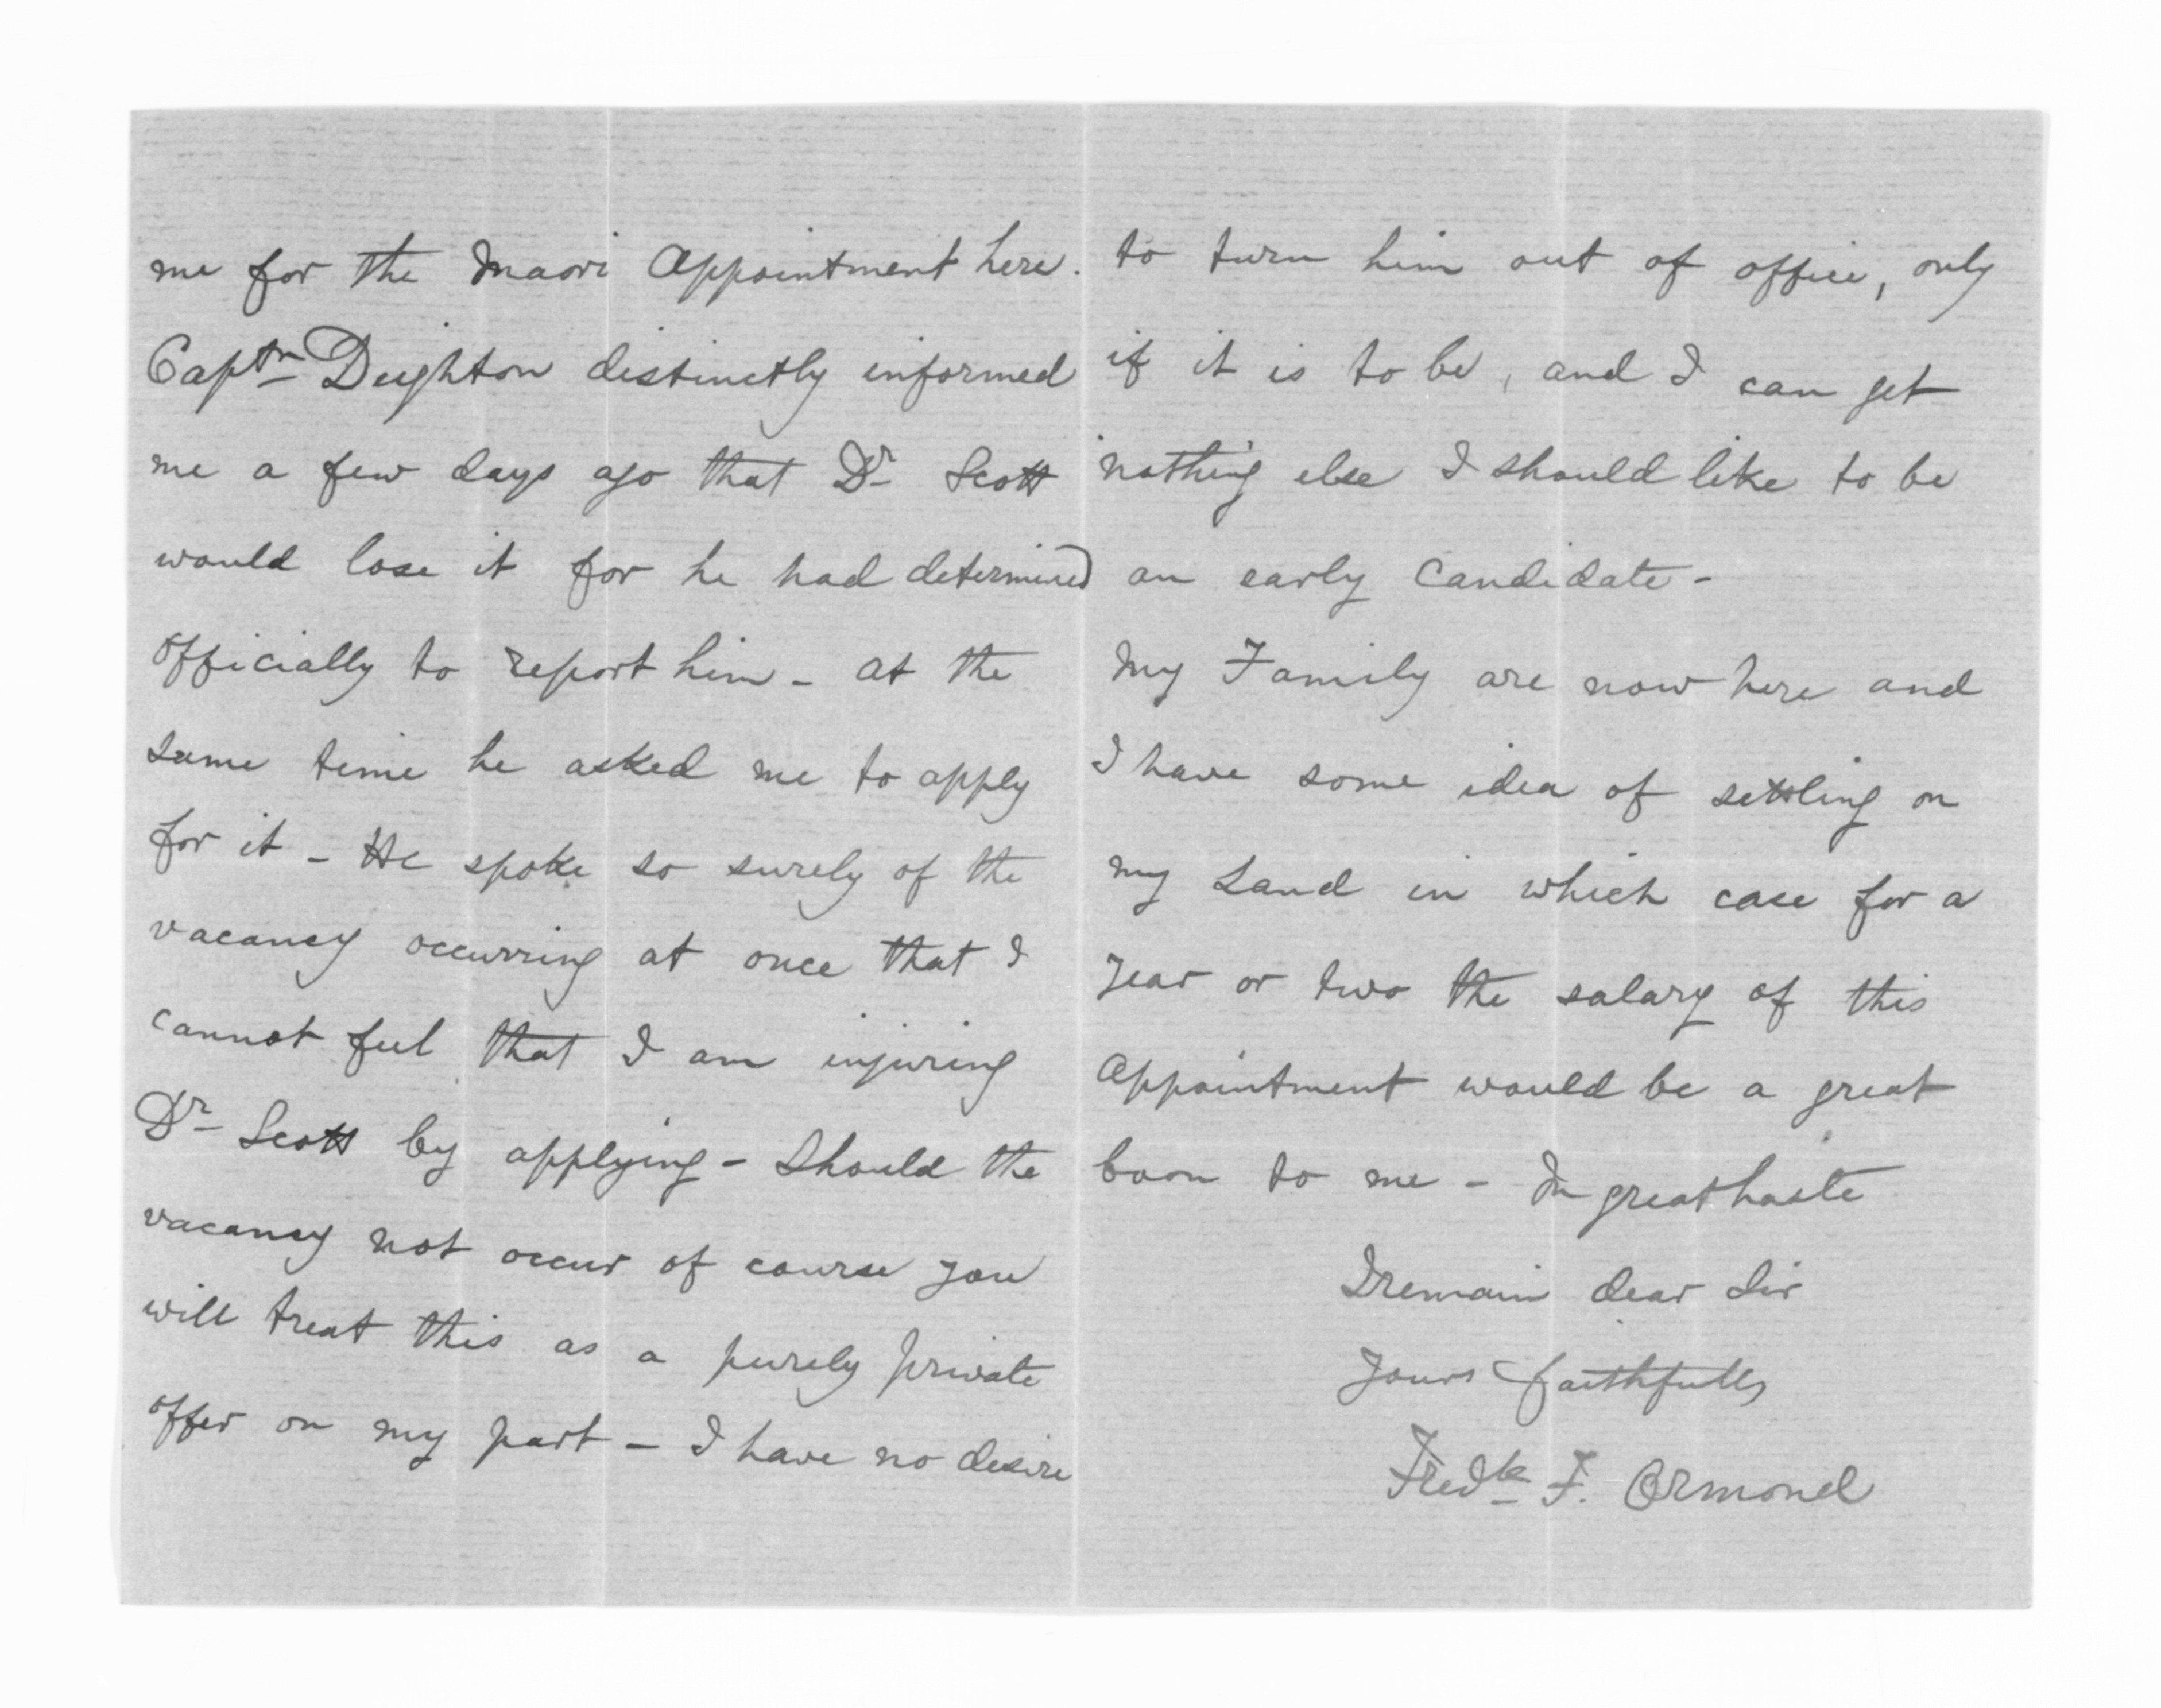 me for the Maori Appointment here.
Captn Deighton distinctly informed
me a few days ago that Dr Scott
would lose it for he had determined
officially to report him - At the
same time he asked me to apply
for it - He spoke so surely of the
vacancy occurring at once that I
cannot feel that I am injuring
Dr Scott by applying - Should the
vacancy not occur of course you
will treat this as a purely private
offer on my part - I have no desire
to turn him out of office, only
if it is to be, and I can get
nothing else I should like to be
an early Candidate -
My Family are now here and
I have some idea of settling on
my Land in which case for a
year or two the salary of this
Appointment would be a great
boon to me - In great haste
I remain dear Sir
Yours faithfully
Fredk F. Ormond